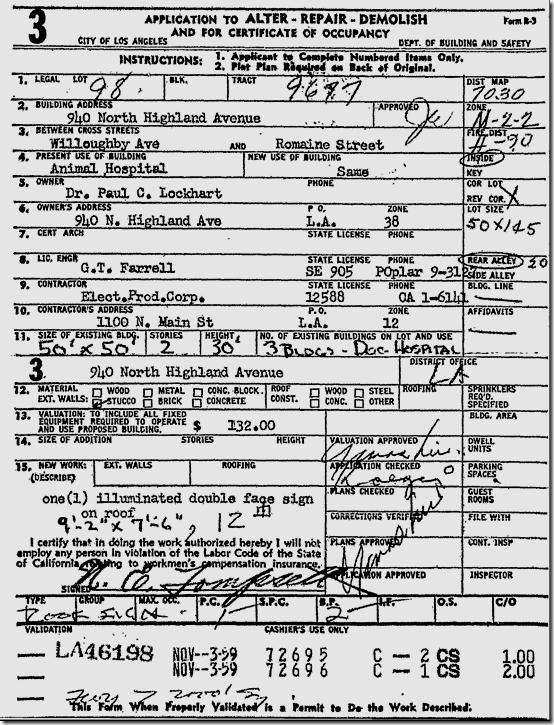 3 APPLICATION TO ALTER - REPAIR - DEMOLISH Form B-3
AND FOR CERTIFICATE OF OCCUPANCY
CITY OF LOS ANGELES DEPT. OF BUILDING AND SAFETY
INSTRUCTIONS: 1. Applicant to Complete Numbered Items Only.
2. Plot Plan Required on Back of Original.
1. LEGAL LOT 98 BLK. TRACT 9627 DIST MAP
7030
2. BUILDING ADDRESS APPROVED ZONE
940 North Highland Avenue M-2-2
3. BETWEEN CROSS STREETS FIRE DIST
Willoughby Ave AND Romaine Street #-90
4. PRESENT USE OF BUILDING NEW USE OF BUILDING INSIDE
Animal Hospital Same KEY
5. OWNER PHONE COR LOT
Dr. Paul C. Lockhart REV COR. X
6. OWNER'S ADDRESS P O. ZONE LOT SIZE
940 N. Highland Ave L.A. 38 50 x 145
7. CERT ARCH STATE LICENSE PHONE
8. LIC, ENGR STATE LICENSE PHONE REAR ALLEY 30
G.T. Farrell SE 905 POplar 9-3127 SIDE ALLEY
9. CONTRACTOR STATE LICENSE PHONE BLDG. LINE
Elect.Prod.Corp. 12588 CA 1-6141
10. CONTRACTOR'S ADDRESS P.O. ZONE AFFIDAVITS
1100 N. Main St L.A. 12
11. SIZE OF EXISTING BLDG. STORIES HEIGHT NO. OF EXISTING BUILDINGS ON LOT AND USE
50' x 50' 2 30' 3 BLDGS - DOG-HOSPITAL
3. 940 North Highland Avenue DISTRICT OFFICE
LA
12. MATERIAL WOOD METAL CONC. BLOCK. ROOF WOOD STEEL ROOFING SPRINKLERS
EXT. WALLS: STUCCO BRICK CONCRETE CONST. CONC. OTHER REQ'D. SPECIFIED
13. VALUATION: TO INCLUDE ALL FIXED BLDG. AREA
EQUIPMENT REQUIRED TO OPERATE
AND USE PROPOSED BUILDING. $ 132.00
14. SIZE OF ADDITION STORIES HEIGHT VALUATION APPROVED DWELL UNITS
15. NEW WORK: EXT. WALLS ROOFING APPLICATION CHECKED PARKING SPACES
(DESCRIBE)
PLANS CHECKED GUEST ROOMS
one(1) illuminated double face sign
on roof CORRECTIONS VERIFIED FILE WITH
9'-2" x 7'-6", 12
I certify that in doing the work authorized hereby I will not PLANS APPROVED CONT. INSP
employ any person in violation of the Labor Code of the State
of California relating to workmen's compensation insurance.
SIGNED APPLICATION APPROVED INSPECTOR
TYPE GROUP MAX. OCC. P.C. S.P.C. B.P. I.F. O.S. C/O
ROOF SIGN 1- 2-
VALIDATION CASHIER'S USE ONLY
LA46198 NOV--3-59 72695 C - 2 CS 1.00
NOV--3-59 72696 C - 1 CS 2.00
This Form When Properly Validated is a Permit to Do the Work Described.